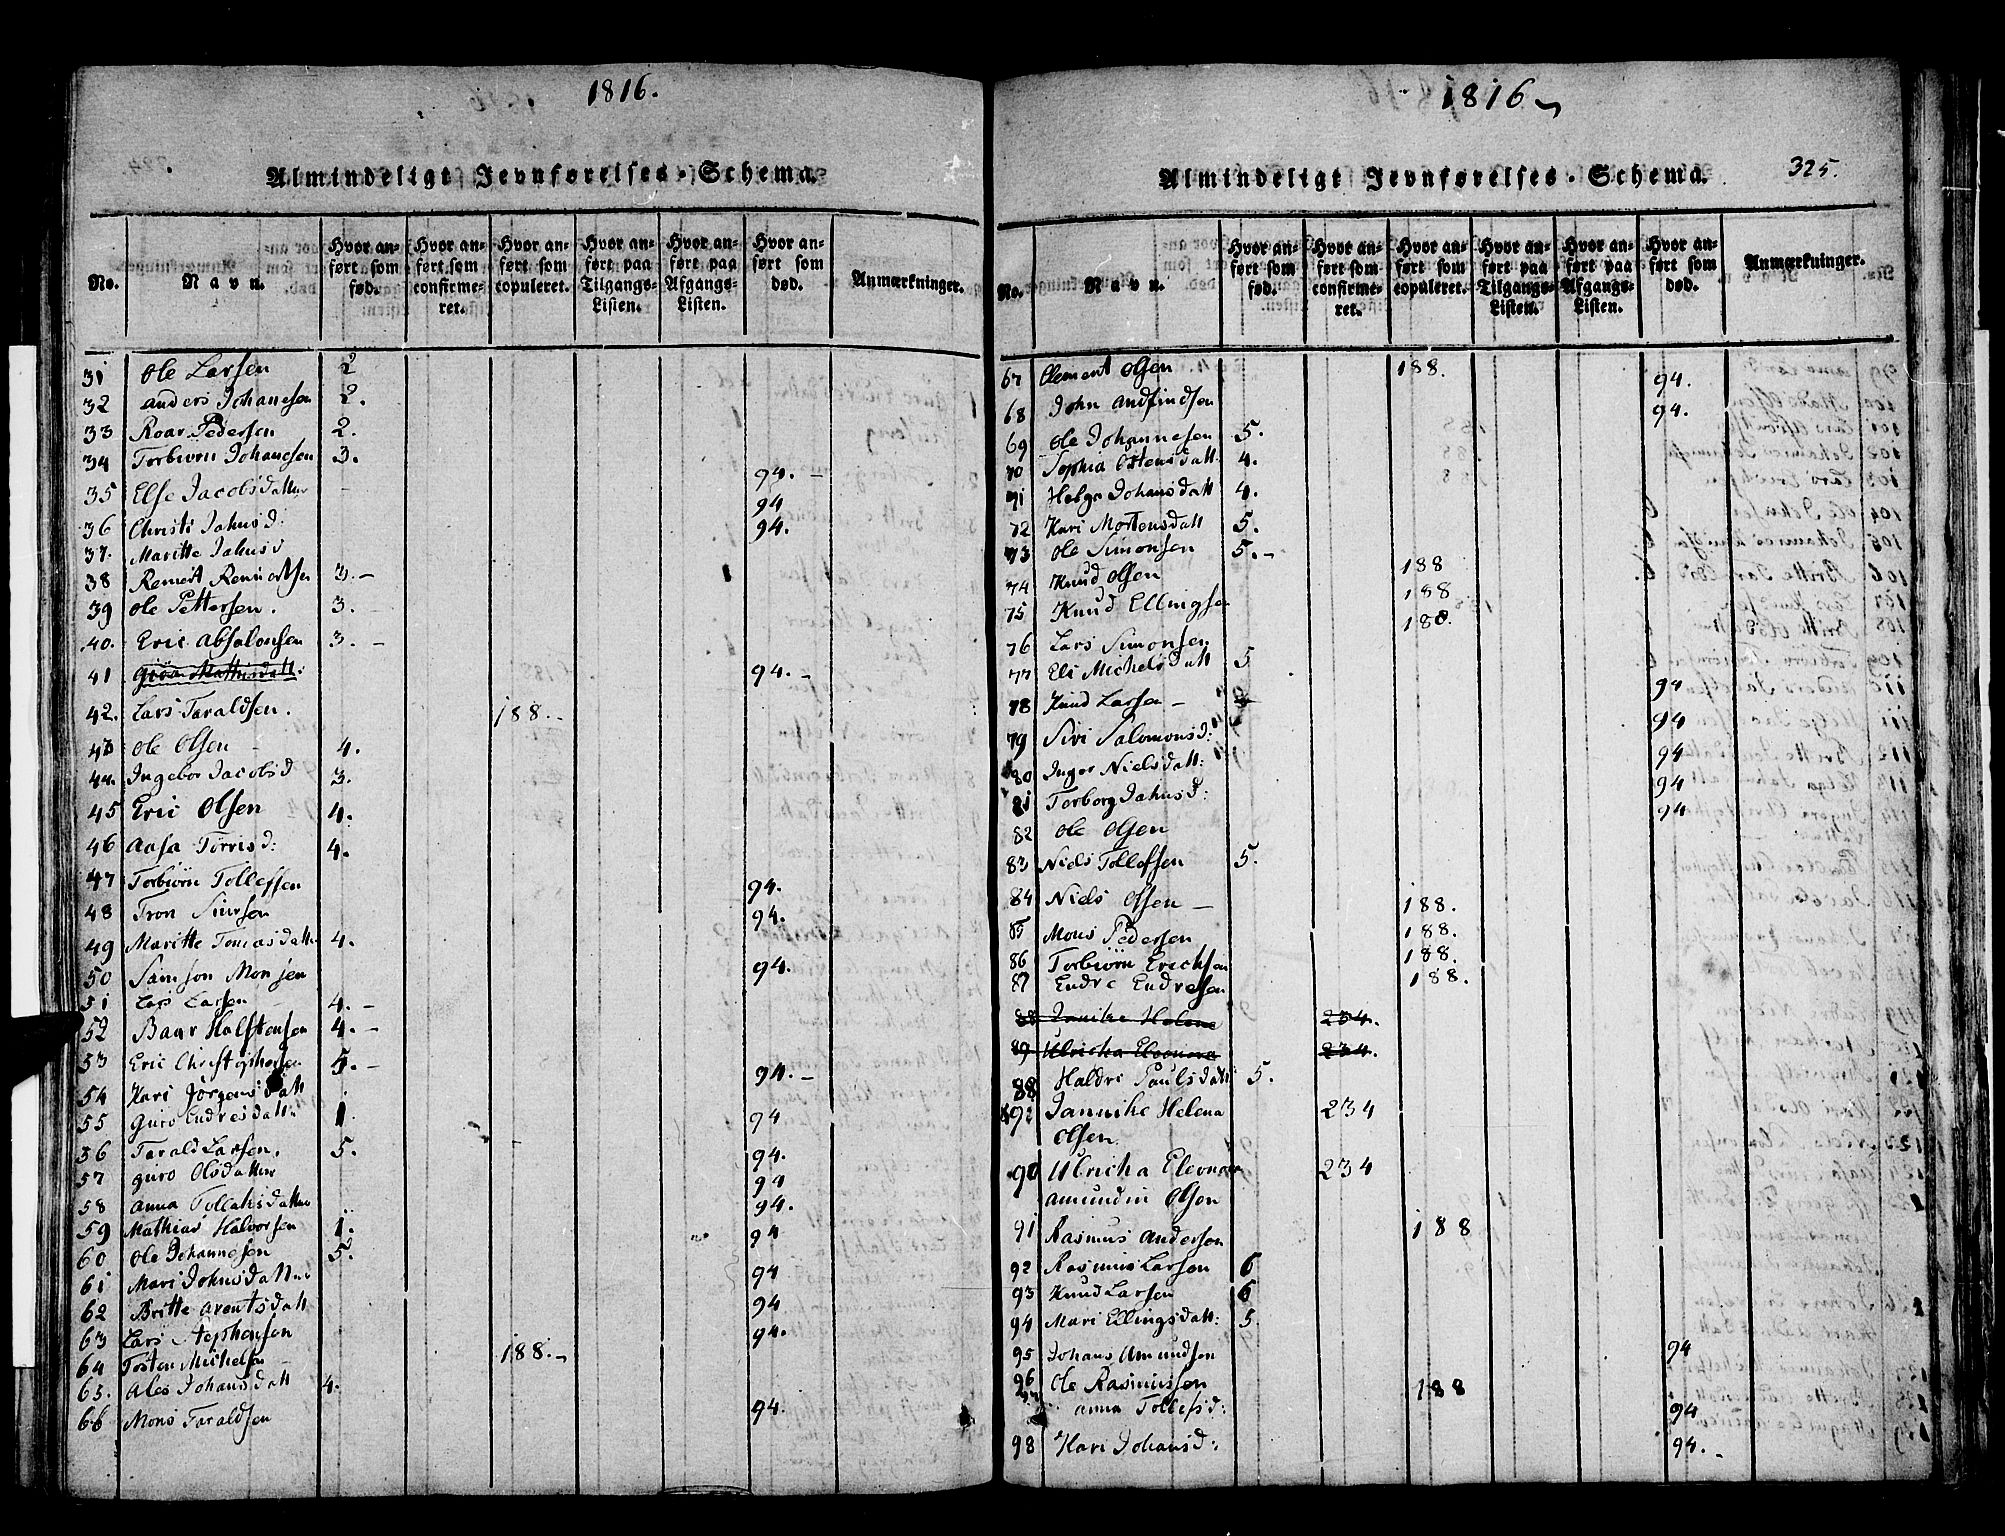 1816.
Almindeligt Jevnførelses-Schema.
No.
Navn.
Hvor anført som fød.
Hvor anført som confirmeret.
Hvor anført som copuleret.
Hvor anført paa Tilgangs-Listen.
Hvor anført paa Afgangs-Listen.
Hvor anført som død.
Anmærkninger.
31 Ole Larsen 2
32 anders Johanesen 2.
33 Roar Pedersen 2.
34 Torbiörn Johanesen 3.
35 Else Jacobsdatter 94.
36 Christi Johnsd: 94
37. Maritte Johnsd 94.
38 Remert Remertsen 3.
39 Ole Pettersen. 3.
40. Eric Absalonsen 3.
41 Giöa Mathisdatt: 94.
42. Lars Taraldsen. 188.
43 Ole Olsen 4.
44. Ingebor Jacobsd 3.
45 Eric Olsen 4.
46 Aasa Torrisd: 4.
47 Torbiörn Tollefsen 94.
48 Tron Siursen 94.
49 Maritte Tomasdatter 4.
50 Samson Monsen 94.
51 Lars Larsen 4.
52 Baar Halstensen 4.
53 Eric Christophersen 5.
54 Kari Jörgensdatt 94.
55 Guro Endresdatt: 1. 94
56 Tarald Larsen. 5.
57 guro Olsdatter 94.
58 anna Tollaksdatter 94
59 Mathias Halvorsen 1. 94.
60 Ole Johannesen 5. 94
61 Mari Johnsdatter 94
62 Britte Arentsdatt 94
63 Lars Stephensen 94.
64 Tosten Michelsen 188.
65. Ales Johansdatt 4.
66 Mons Taraldsen 94.
1816
325.
Almindeligt Jevnførelses-Schema.
No.
Navn.
Hvor anført som fød.
Hvor anført som confirmeret.
Hvor anført som copuleret.
Hvor anført paa Tilgangs-Listen.
Hvor anført paa Afgangs-Listen.
Hvor anført som død.
Anmærkninger.
67 Clement Olsen 188. 94.
68 John Andfindsen 94.
69 Ole Johannesen 5.
70 Sophia Ostensdatt 4.
71 Helga Johansdatt 4.
72 Kari Mortensdatt 5.
73 Ole Simonsen 5.
74 Knud Olsen 188
75 Knud Ellingsen 188
76 Lars Simonsen 188.
77 Eli Michelsdatt 5
78 Knud Larsen 94
79 Siri Salomonsd: 94
80 Inger Nielsdatt: 94
81 Torborg Johnsd: 94
82 Ole Olsen 94
83 Niels Tollefsen 5.
84 Niels Olsen 188.
85 Mons Pedersen 188.
86 Torbiörn Erichsen 188.
87 Endre Endresen 188.
88 Janike Helene 234.
89 Ulricha Eleonora 234.
88 Haldri Paulsdatt 5.
89 Jannike Helena 234
Olsen.
90 Ulricha Eleonora 234
amundin Olsen
91 Rasmus Andersen 188
92 Rasmus Larsen 6
93 Knud Larsen 6
94 Mari Ellingsdatt: 5.
95 Johans Amundsen 94
96 Ole Rasmussen 188
97 anna Tollefsd: 94
98 Kari Johansd: 94.